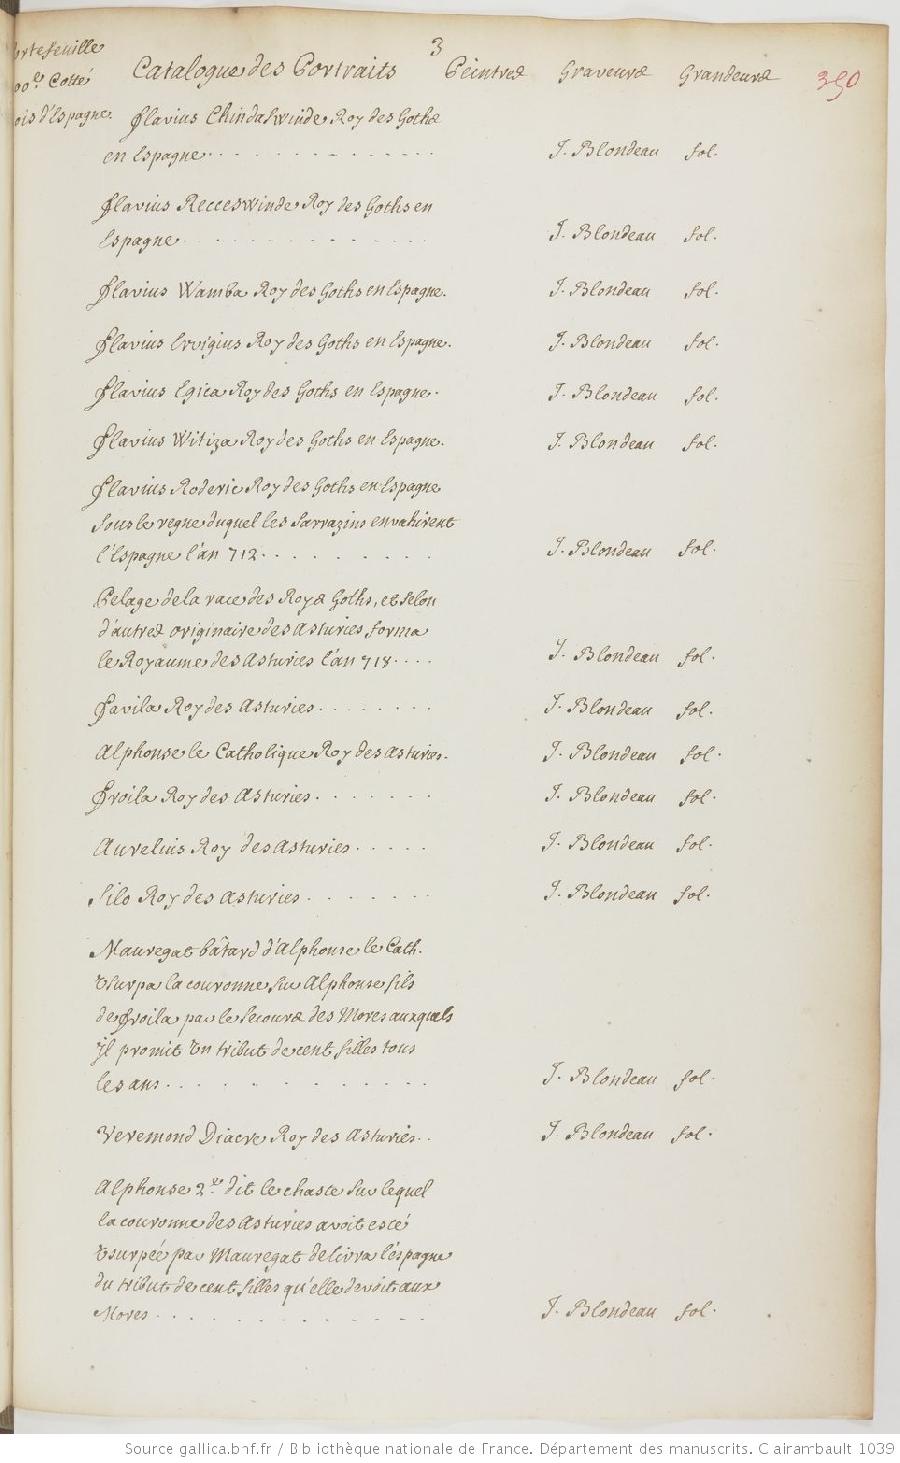 3
ortefeuille
00.es Costé
ois d'Espagne.
Catalogue des Portraits Peintres Graveurs Grandeurs 350
Flavius Chindaswinde Roy des Goths
en Espagne . . . . . . . . . . . . J. Blondeau fol.
Flavius Recceswinde Roy des Goths en
Espagne . . . . . . . . . . . . J. Blondeau fol.
Flavius Wamba Roy des Goths en Espagne. J. Blondeau fol.
Flavius Ervigius Roy des Goths en Espagne. J. Blondeau fol.
Flavius Egica Roy des Goths en Espagne. J. Blondeau fol.
Flavius Witiza Roy des Goths en Espagne. J. Blondeau fol.
Flavius Roderic Roy des Goths en Espagne
sous le regne duquel les Sarrazins envahirent
l'Espagne l'an 712 . . . . . . . . J. Blondeau fol.
Pelage de la race des Roys Goths, et selon
d'autres originaire des Asturies forma
le Royaume des Asturies l'an 718 . . . . J. Blondeau fol.
Favila Roy des Asturies . . . . . . . J. Blondeau fol.
Alphonse le Catholique Roy des Asturies. J. Blondeau fol.
Froila Roy des Asturies . . . . . . . J. Blondeau fol.
Aurelius Roy des Asturies . . . . . J. Blondeau fol.
Silo Roy des Asturies . . . . . . . J. Blondeau fol.
Mauregat bâtard d'Alphonse le Cath.
Usurpa la couronne sur Alphonse fils
de Froila par le secours des Mores auxquels
Il promit Un tribut de cent filles tous
les ans . . . . . . . . . . . . J. Blondeau fol.
Veremond Diacre Roy des Asturies . . J. Blondeau fol.
Alphonse 2.e dit le chaste sur lequel
la couronne des Asturies avoit esté
Usurpée par Mauregat delivra l'espagne
du tribut de cent filles qu'elle devoit aux
Mores . . . . . . . . . . . . J. Blondeau fol.
Source gallica.bnf.fr / Bibliothèque nationale de France. Département des manuscrits. Clairambault 1039